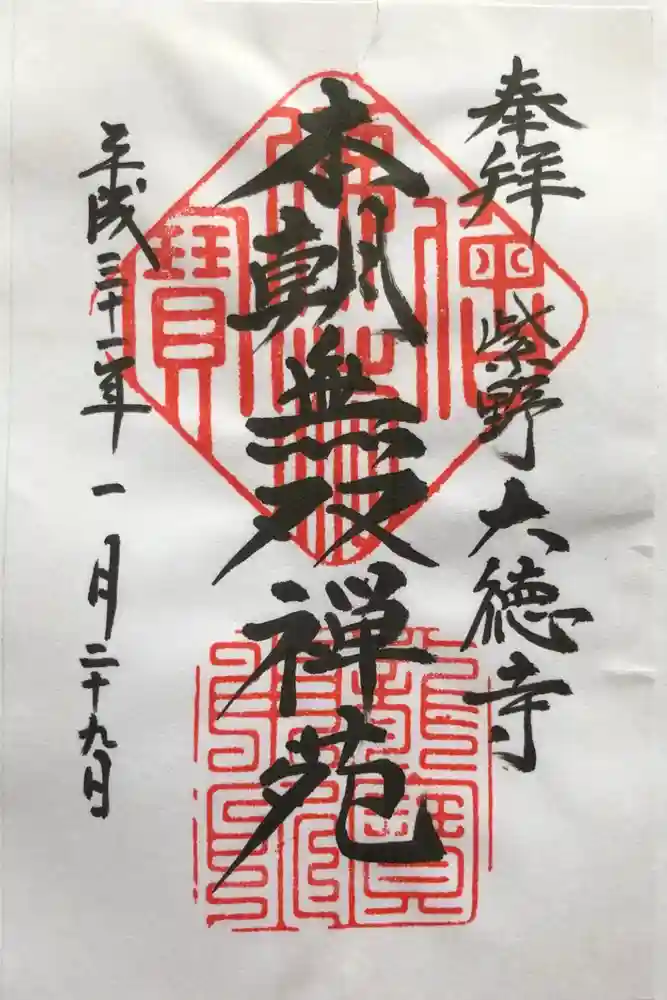 奉拝 紫野 大徳寺
本朝無双禅苑
平成三十一年一月二十九日